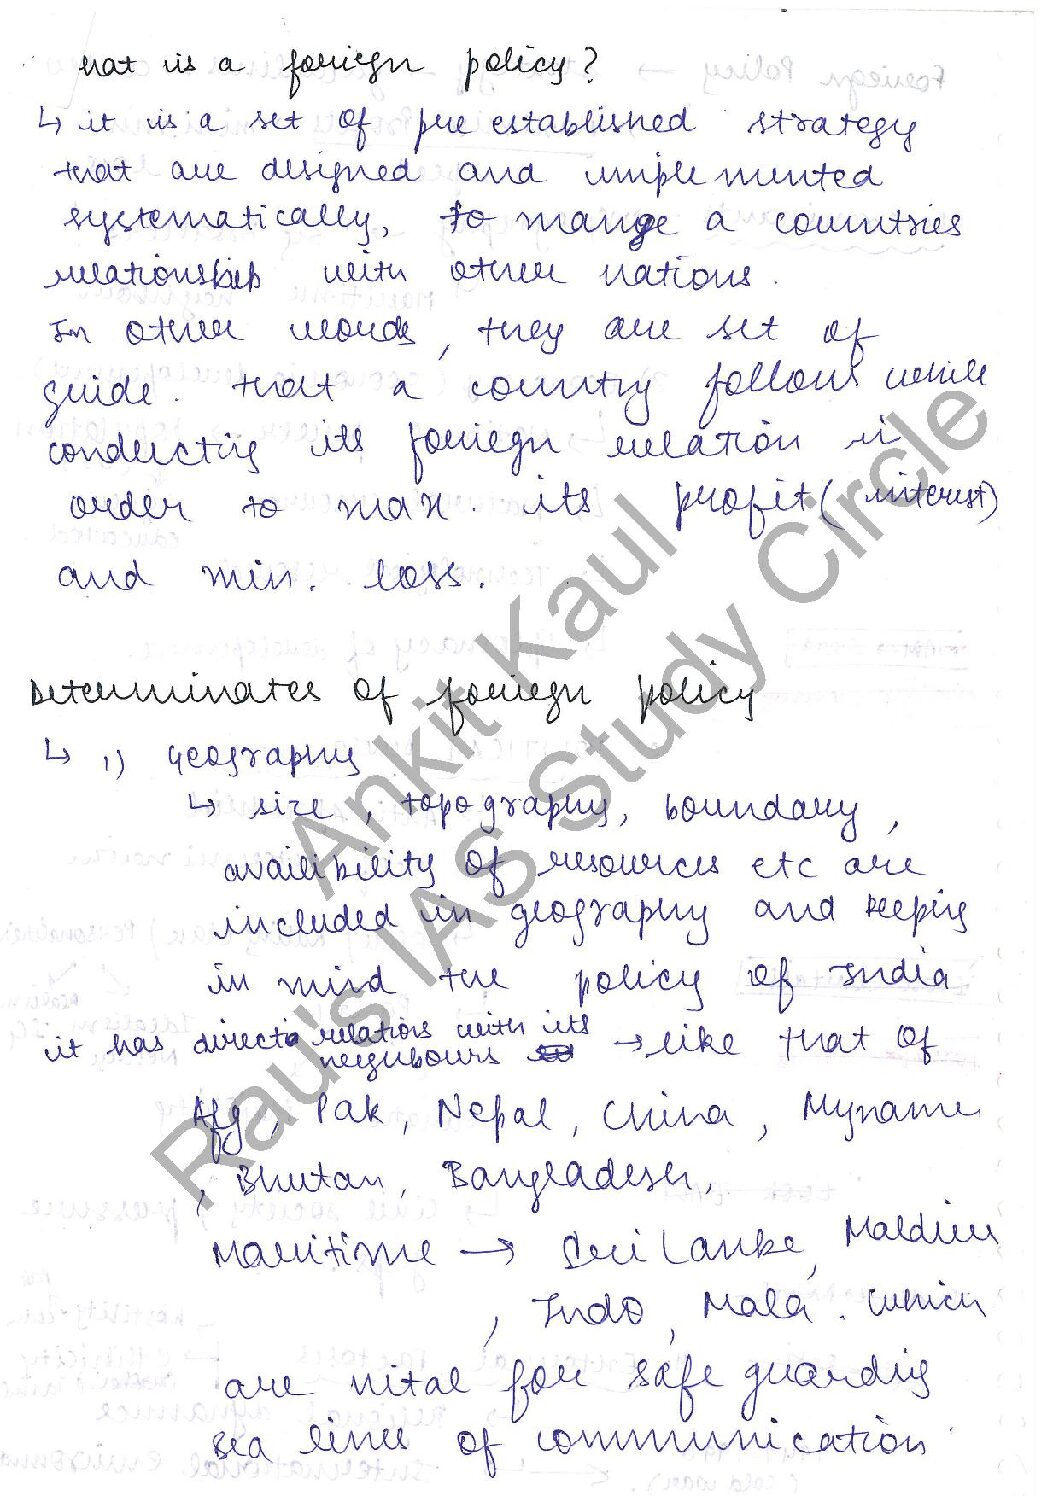 hat is a foriegn policy?
↳ it is a set of pre established strategy
that are designed and implemented
systematically, to mange a countries
relationship with other nations.
In other words, they are set of
guide. that a country follows while
conducting its foriegn relation in
order to max. its profit (interest)
and min. loss.
Determinates of foriegn policy
↳ 1) Geography
↳ size, topography, boundary,
availibility of resources etc are
included in geography and keeping
in mind the policy of India
it has direct relations with its neighbours → like that of
Afg, Pak, Nepal, China, Myname
, Bhutan, Bangladesh,
Maritime → Sri Lanke, Maldive
, Indo, Mala. which
are vital for safe guarding
sea lines of communication
Ankit Kaul
Rau's IAS Study Circle